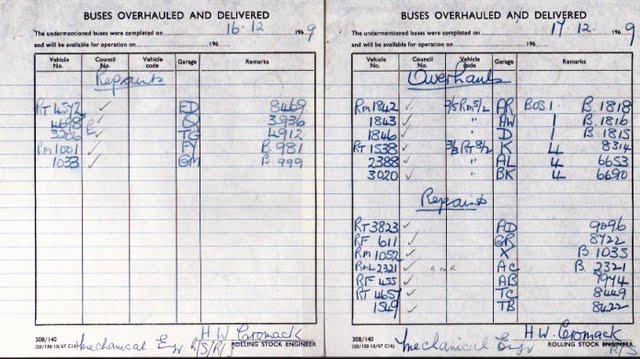 BUSES OVERHAULED AND DELIVERED
The undermentioned buses were completed on 16.12 1969
and will be available for operation on 196
Vehicle No. Council No. Vehicle code Garage Remarks
Repaints
RT 4572 ✓ ED 8469
4698 ✓ 3936
3206 ✓ TG 4912
RM 1001 ✓ FY B. 981
1033 ✓ GM B. 999
308/140
Mechanical H W Cromack
ROLLING STOCK ENGINEER
BUSES OVERHAULED AND DELIVERED
The undermentioned buses were completed on 17.12. 1969
and will be available for operation on 196
Vehicle No. Council No. Vehicle code Garage Remarks
Overhauls
RM 1842 ✓ 2/5 RM 5/2 AR BOS 1. B. 1818
1843 ✓ " AW 1 B. 1816
1846 ✓ " D 1 B. 1815
RT 1538 ✓ 3/3 RT 8/2 K 4 8314
2388 ✓ " AL 4 6653
3020 ✓ " BK 4 6690
Repaints
RT 3823 ✓ AD 9096
RF 611 ✓ GR 8722
RM 1052 ✓ X B 1035
RML 2321 ✓ AC B. 2321
RF 455 ✓ AB 7974
RT 4657 ✓ TC 8449
1549 ✓ TB 8422
308/140
Mechanical H.W. Cromack
ROLLING STOCK ENGINEER